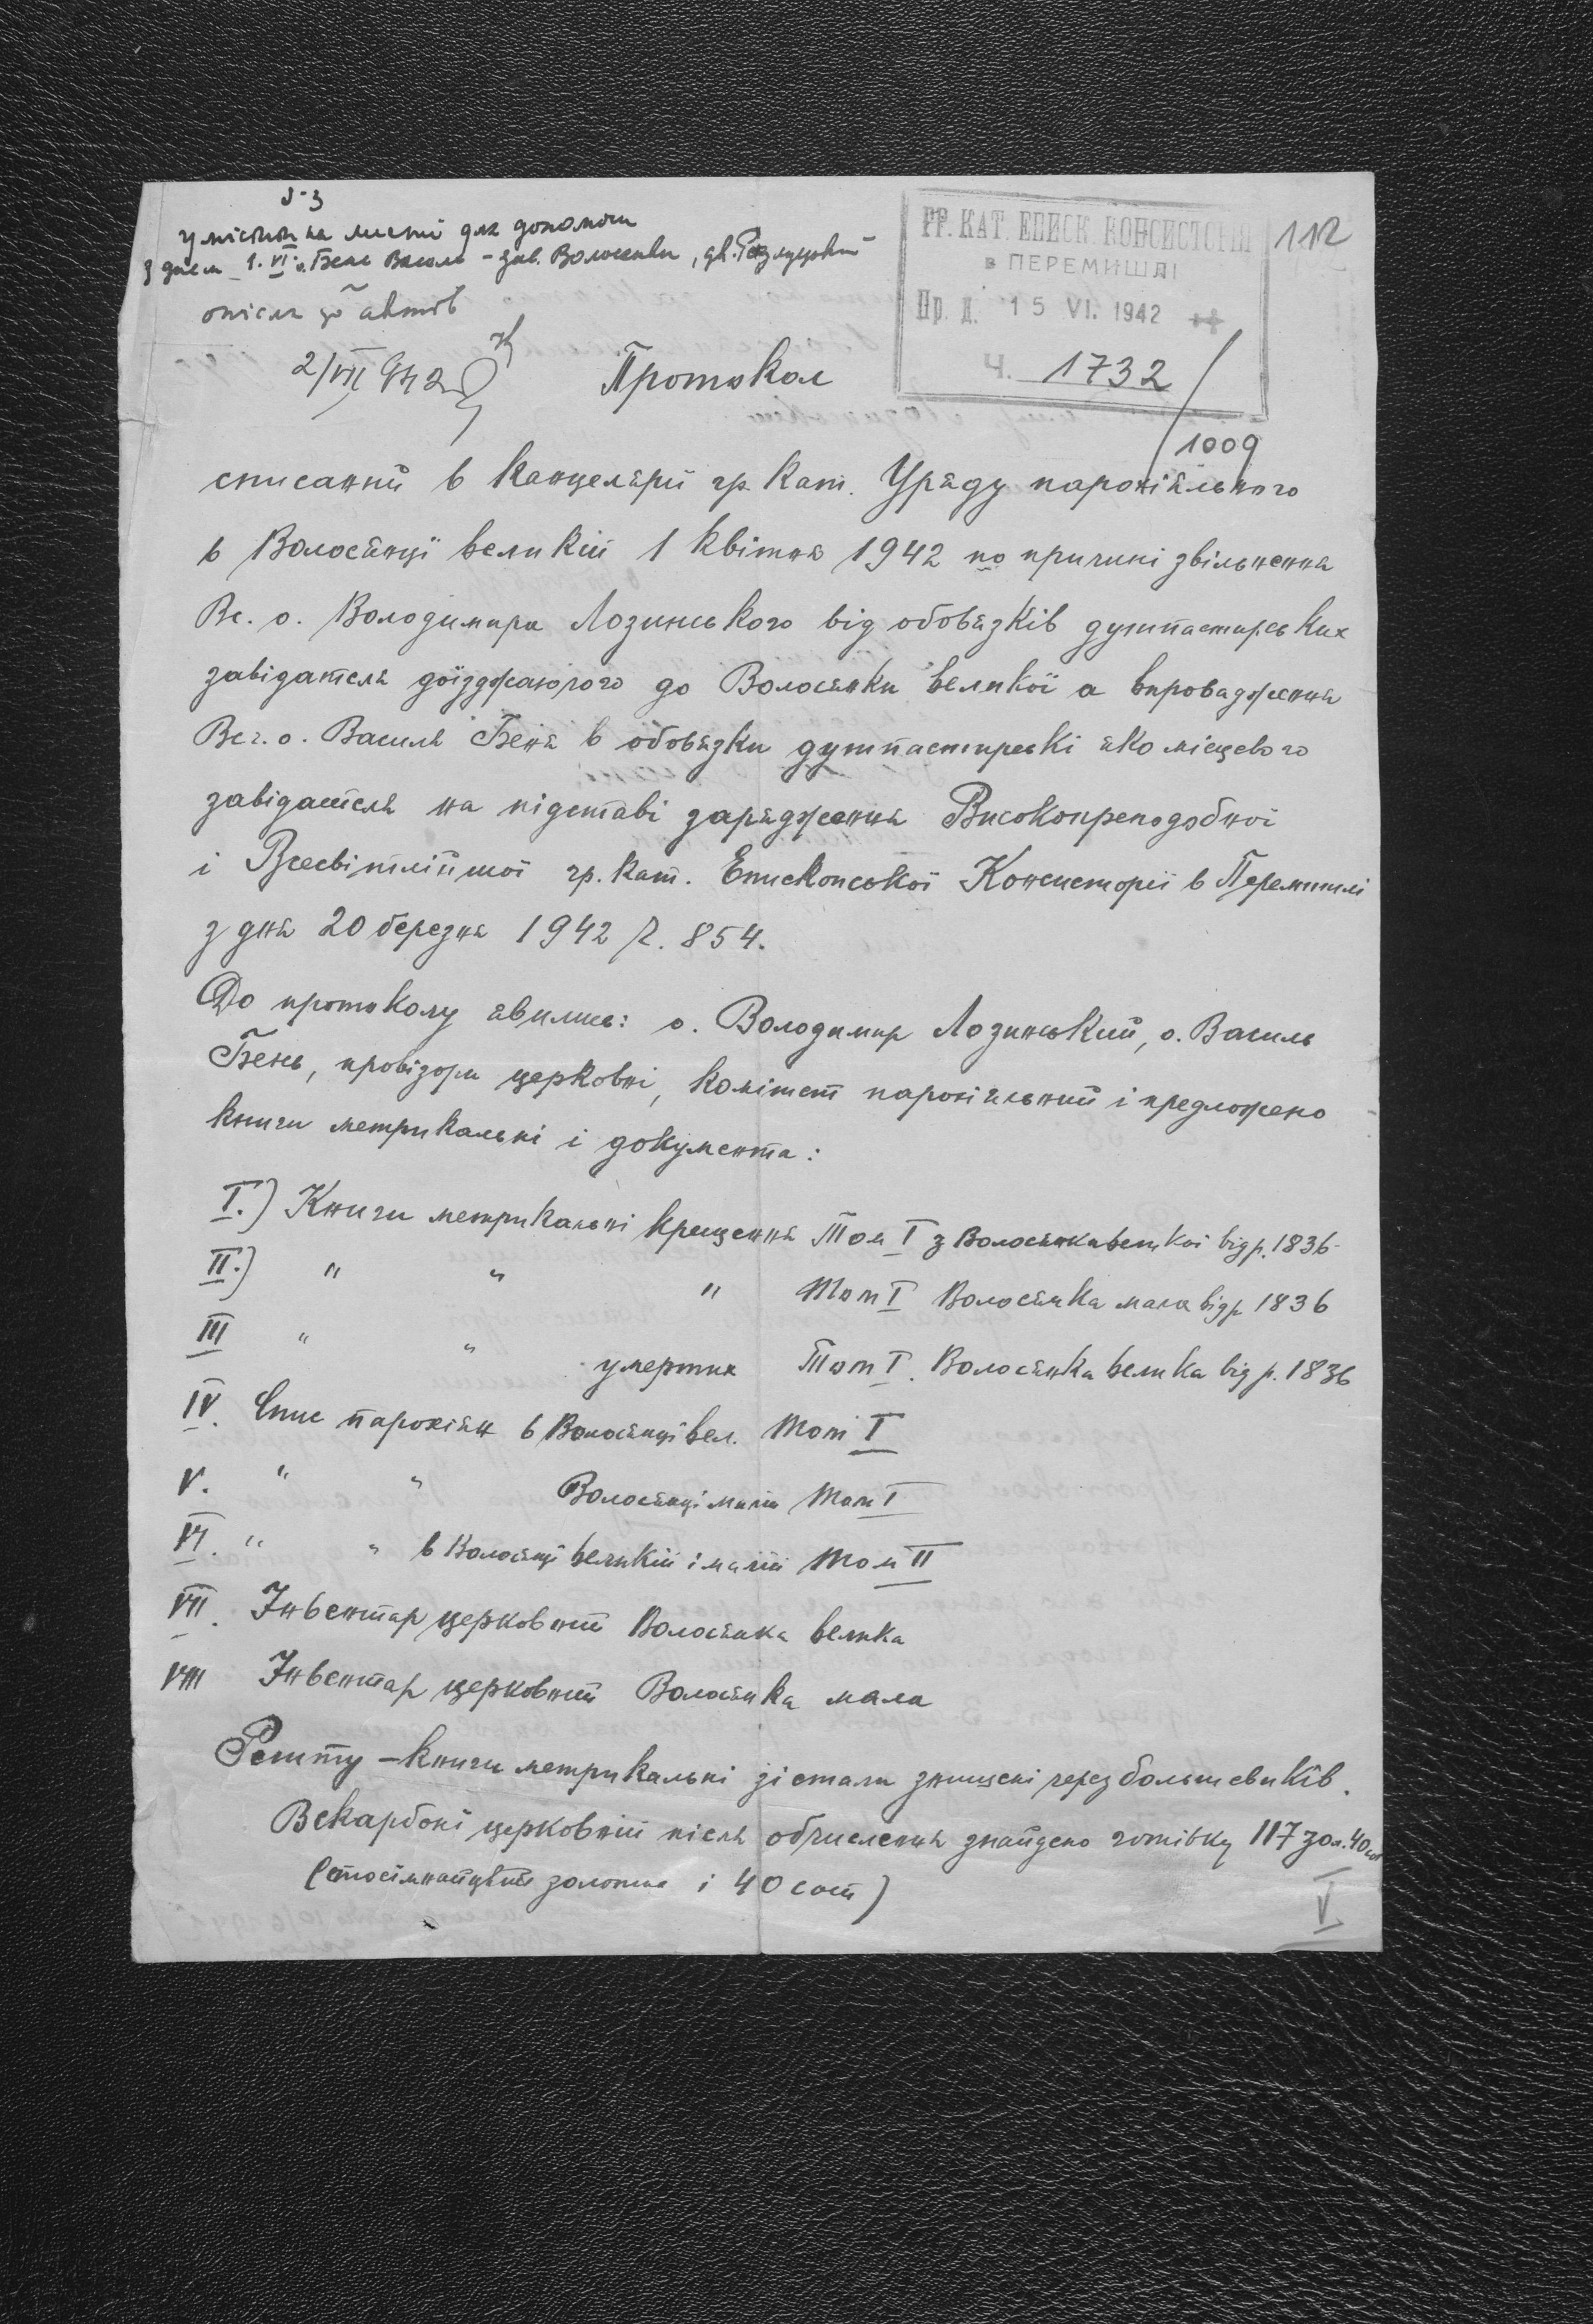 умістити на листі для допомоги
з днем 1. VI. о. Беня Василь – зав. Волосянки, дек.
опісля до актів
2/VII 942
ГР. КАТ. ЕПИСК. КОНСИСТОРІЯ
в ПЕРЕМИШЛІ
Пр. д. 15 VI. 1942
Ч. 1732
/1009
112
Протокол
списаний в канцелярії гр. кат. Уряду парохіяльного
в Волосянці великій 1 квітня 1942 по причині звільнення
Вс. о. Володимира Лозинського від обовязків душпастирських
завідателя доїзджаючого до Волосянки великої а впровадження
Всч. о. Василя Беня в обовязки душпастирські яко місцевого
завідателя на підставі зарядження Високопреподобної
і Всесвітлійшої гр. кат. Епископської Консисторії в Перемишлі
з дня 20 березня 1942 Ч. 854.
До протоколу явились: о. Володимир Лозинський, о. Василь
Бень, провізори церковні, комітет парохіяльний і предложено
книги метрикальні і документа:
I.) Книги метрикальні крещення Том I з Волосянки великої від р. 1836
II.) " " " Том I Волосянка мала від р. 1836
III " " умерших Том I. Волосянка велика від р. 1836
IV. Спис парохіян в Волосянці вел. Том I
V. " " Волосянці малій Том I
VI. " " в Волосянці великій і малій Том II
VII. Інвентар церковний Волосянка велика
VIII Інвентар церковний Волосянка мала
Решту – книги метрикальні зістали знищені через большевиків.
В скарбоні церковній після обчислення знайдено готівку 117 зол. 40 сот
(стосімнайцять золотих і 40 сот)
V